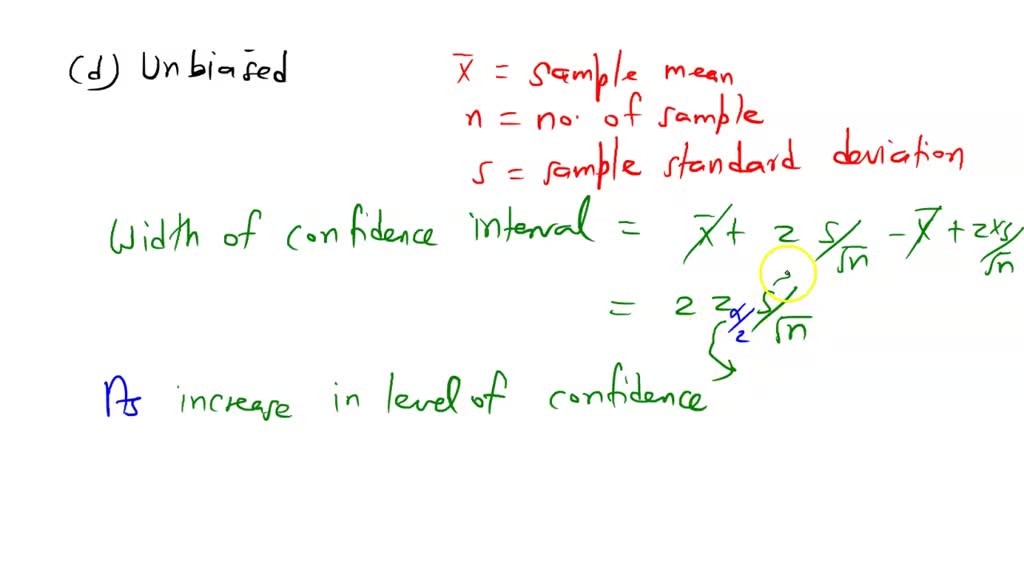 (d) Unbiased
x̄ = sample mean
n = no. of sample
s = sample standard deviation
Width of confidence interval = x̄ + z s/√n - x̄ + z×s/√n
= 2 z α/2 s/√n
As increase in level of confidence